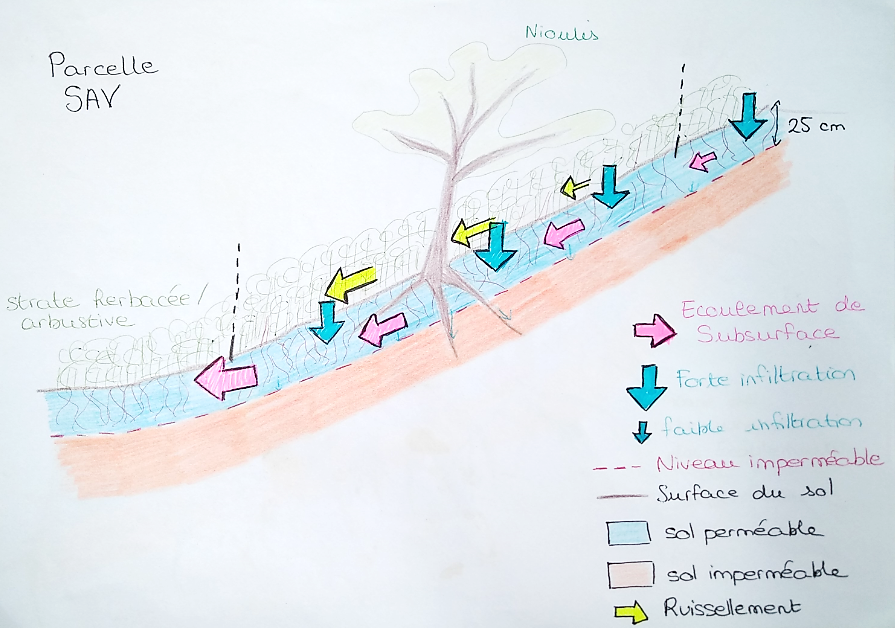 Parcelle
SAV
Nioulis
25 cm
strate herbacée/
arbustive
Ecoulement de
Subsurface
Forte infiltration
faible infiltration
Niveau imperméable
Surface du sol
sol perméable
sol imperméable
Ruissellement